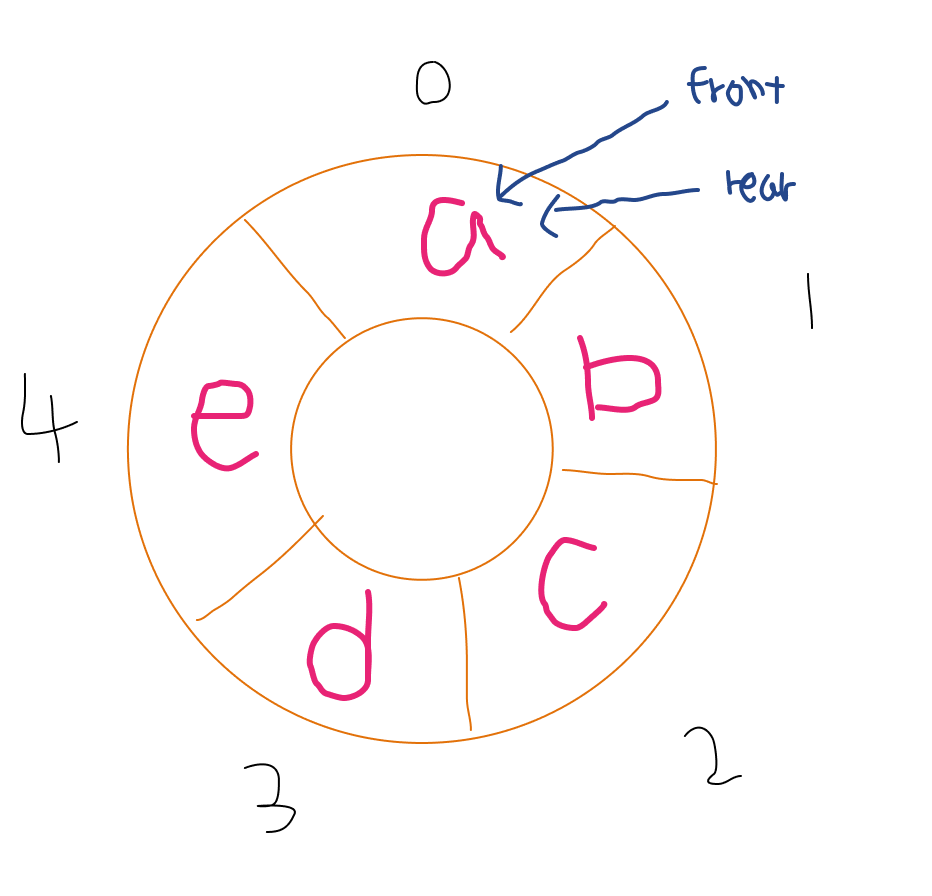 0
front
rear
a
1
b
4
e
c
d
2
3